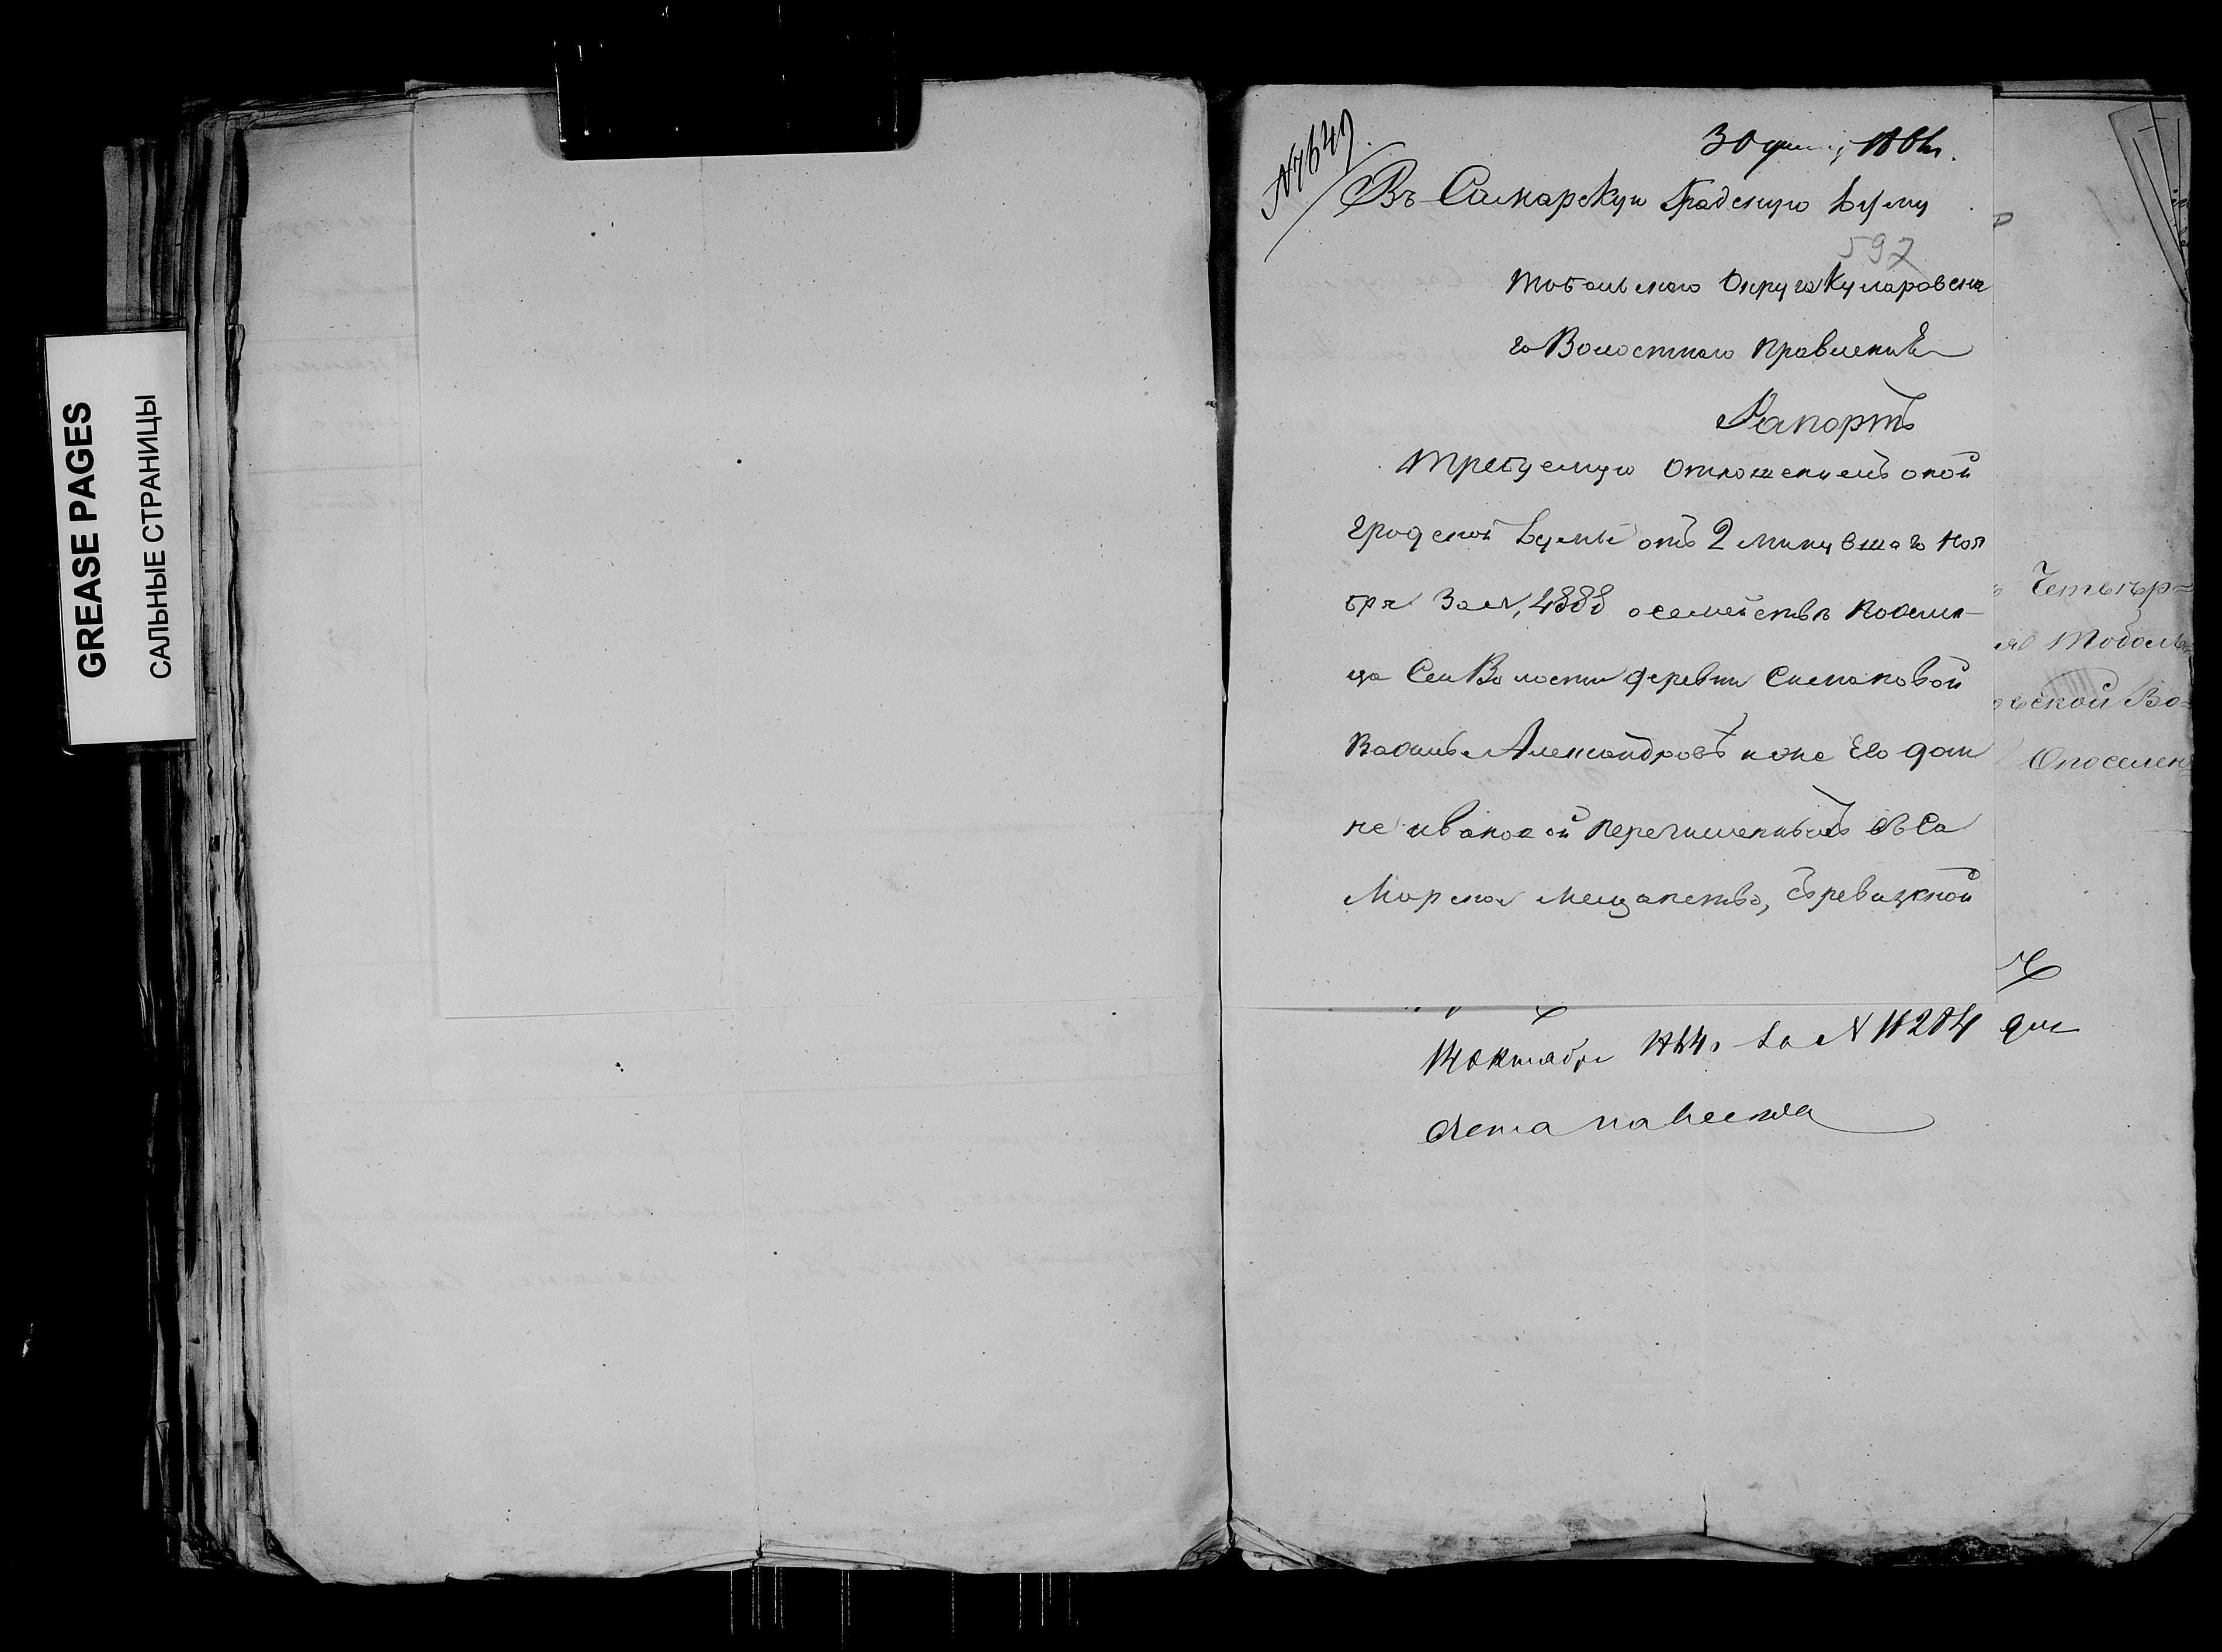 GREASE PAGES
САЛЬНЫЕ СТРАНИЦЫ
№ 7649
30
Въ Самарскую Градскую Думу
597
Тобольскаго Округа Куларовска
го Волостнаго Правления
Рапортъ
Требуемую отношениемъ оной
градской Думы от 2 минувшаго Ноя
бря За №, 4888 о семействе Поселен-
ца Сей Волости деревни
Василье Александровъ и жне Его дом
не ивановой перечисленныхъ въ Са
Марское мещанство, съ ревизкой
Четвер=
Тобольс
вской Во=
Опоселен
14 октября 1864 за № 11284